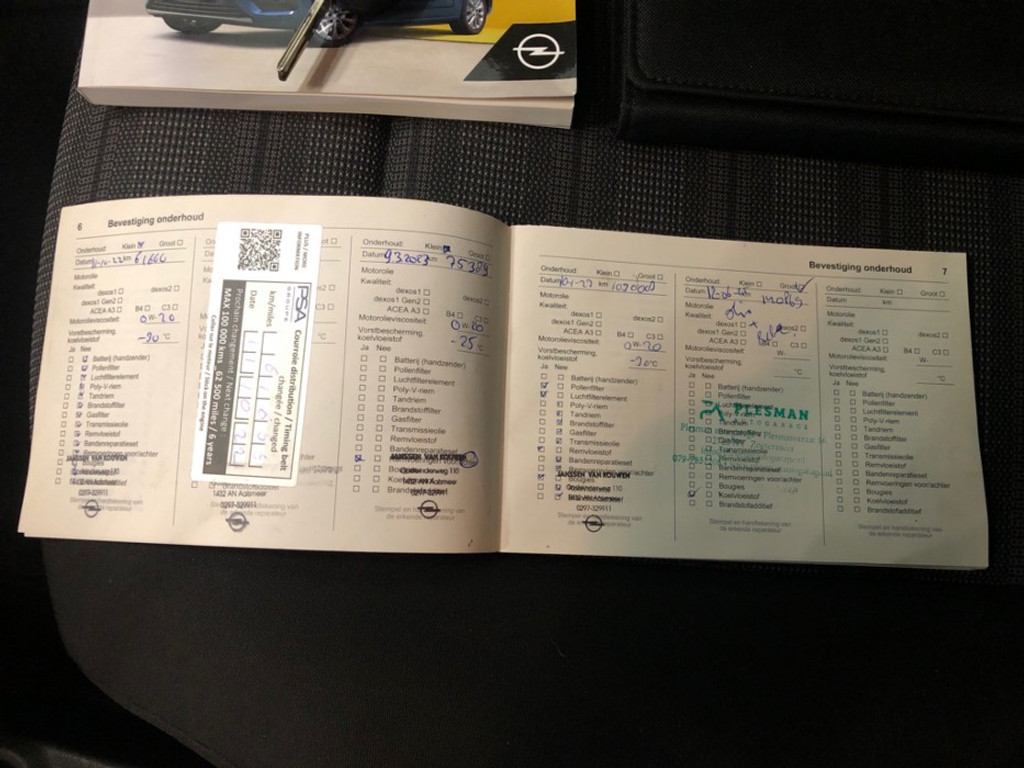 6 Bevestiging onderhoud
Onderhoud: Klein Groot
Datum km 61660
Motorolie
Kwaliteit:
dexos1 dexos2
dexos1 Gen2
ACEA A3 B4 C3
Motorolieviscositeit: 0W-20
Vorstbescherming,
koelvloeistof -30 °C
Ja Nee
Batterij (handzender)
Pollenfilter
Luchtfilterelement
Poly-V-riem
Tandriem
Brandstoffilter
Gasfilter
Transmissieolie
Remvloeistof
Bandenreparatieset
JANSSEN VAN KOUWEN
Bougies
0297-329911
Stempel en handtekening van
de erkende reparateur
PLUS / MORE
INFORMATION
PSA
GROUPE
Courroie distribution / Timing belt
changée / changed
km/miles
Date
Prochain changement / Next change:
MAX 100 000 kms 62 500 miles / 6 years
1432 AN Aalsmeer
0297-329911
Stempel en handtekening van
de erkende reparateur
Onderhoud: Klein Groot
Datum km 75389
Motorolie
Kwaliteit:
dexos1 dexos2
dexos1 Gen2
ACEA A3 B4 C3
Motorolieviscositeit: 0W-20
Vorstbescherming,
koelvloeistof -25 °C
Ja Nee
Batterij (handzender)
Pollenfilter
Luchtfilterelement
Poly-V-riem
Tandriem
Brandstoffilter
Gasfilter
Transmissieolie
Remvloeistof
Bandenreparatieset
JANSSEN VAN KOUWEN
1432 AN Aalsmeer
0297-329911
Stempel en handtekening van
de erkende reparateur
Bevestiging onderhoud 7
Onderhoud: Klein Groot
Datum km
Motorolie
Kwaliteit:
dexos1 dexos2
dexos1 Gen2
ACEA A3 B4 C3
Motorolieviscositeit: 0W-20
Vorstbescherming,
koelvloeistof -20°C
Ja Nee
Batterij (handzender)
Pollenfilter
Luchtfilterelement
Poly-V-riem
Tandriem
Brandstoffilter
Gasfilter
Transmissieolie
Remvloeistof
Bandenreparatieset
JANSSEN VAN KOUWEN
1432 AN Aalsmeer
0297-329911
Stempel en handtekening van
de erkende reparateur
Onderhoud: Klein Groot
Datum
Motorolie
Kwaliteit:
dexos1 dexos2
dexos1 Gen2
ACEA A3 B4 C3
Motorolieviscositeit: W-
Vorstbescherming,
koelvloeistof °C
Ja Nee
Batterij (handzender)
Pollenfilter
PLESMAN
AUTOGARAGE
Tandriem
Transmissieolie
Remvloeistof
Bandenreparatieset
Remvoeringen voor/achter
Bougies
Koelvloeistof
Brandstofadditief
Stempel en handtekening van
de erkende reparateur
Onderhoud: Klein Groot
Datum km
Motorolie
Kwaliteit:
dexos1 dexos2
dexos1 Gen2
ACEA A3 B4 C3
Motorolieviscositeit: W-
Vorstbescherming,
koelvloeistof °C
Ja Nee
Batterij (handzender)
Pollenfilter
Luchtfilterelement
Poly-V-riem
Tandriem
Brandstoffilter
Gasfilter
Transmissieolie
Remvloeistof
Bandenreparatieset
Remvoeringen voor/achter
Bougies
Koelvloeistof
Brandstofadditief
Stempel en handtekening van
de erkende reparateur